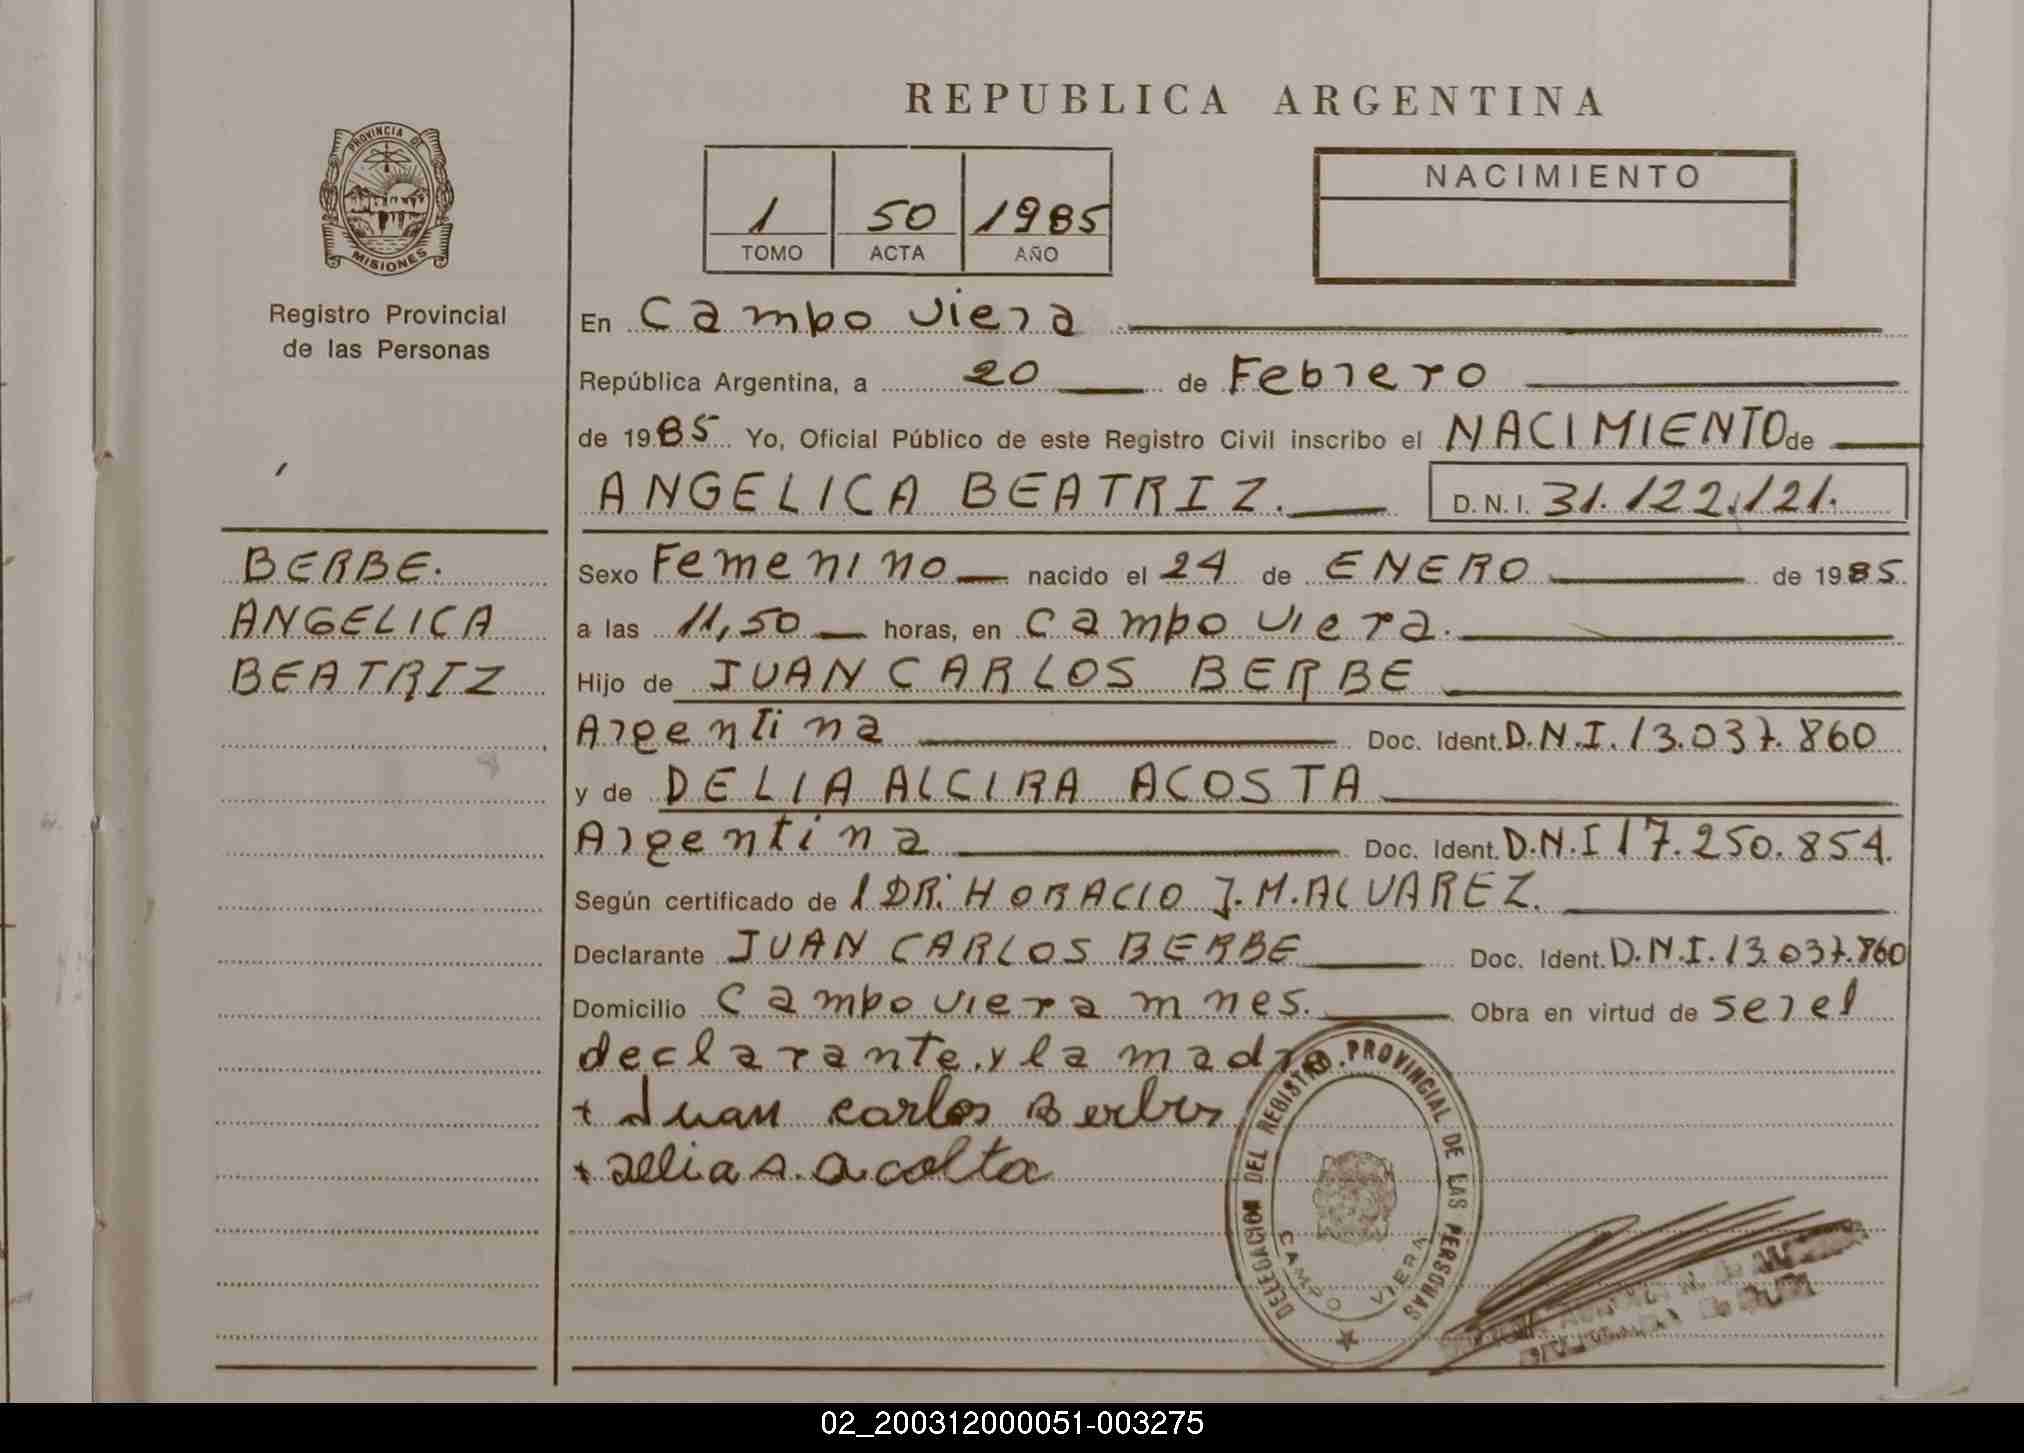 REPUBLICA ARGENTINA
PROVINCIA DE
MISIONES
Registro Provincial
de las Personas
1 50 1985
TOMO ACTA AÑO
NACIMIENTO
En Campo Viera
República Argentina, a 20 de Febrero
de 1985 Yo, Oficial Público de este Registro Civil inscribo el NACIMIENTO de
ANGELICA BEATRIZ. D. N. I. 31.122.121.
BERBE.
ANGELICA
BEATRIZ
Sexo Femenino nacido el 24 de ENERO de 1985
a las 11,50 horas, en Campo Viera.
Hijo de JUAN CARLOS BERBE
Argentina Doc. Ident. D.N.I. 13.037.860
y de DELIA ALCIRA ACOSTA
Argentina Doc. Ident. D.N.I 17.250.854.
Según certificado de 1 DR. HORACIO J. M. ALVAREZ.
Declarante JUAN CARLOS BERBE Doc. Ident. D.N.I. 13.037.860
Domicilio Campo Viera mnes. Obra en virtud de ser el
declarante y la madre.
+ Juan carlos Berbes
+ Delia A. Acosta
DELEGACION DEL REGISTRO PROVINCIAL DE LAS PERSONAS
CAMPO VIERA
02_200312000051-003275